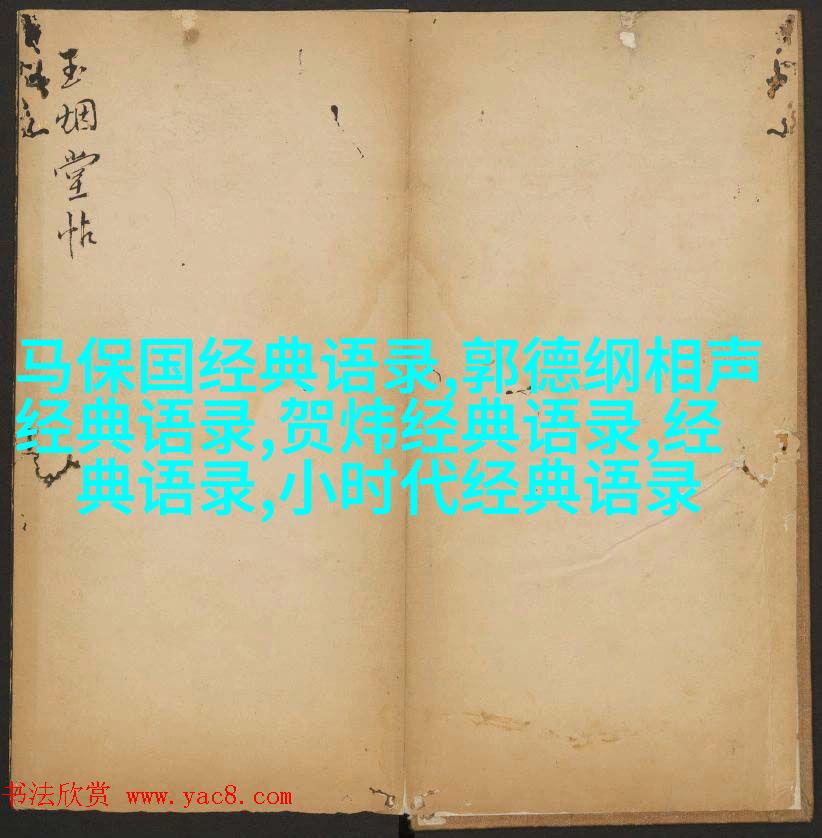 玉烟堂帖
马保国经典语录,郭德纲相声
经典语录,贺炜经典语录,经
典语录,小时代经典语录
书法欣赏 www.yac8.com